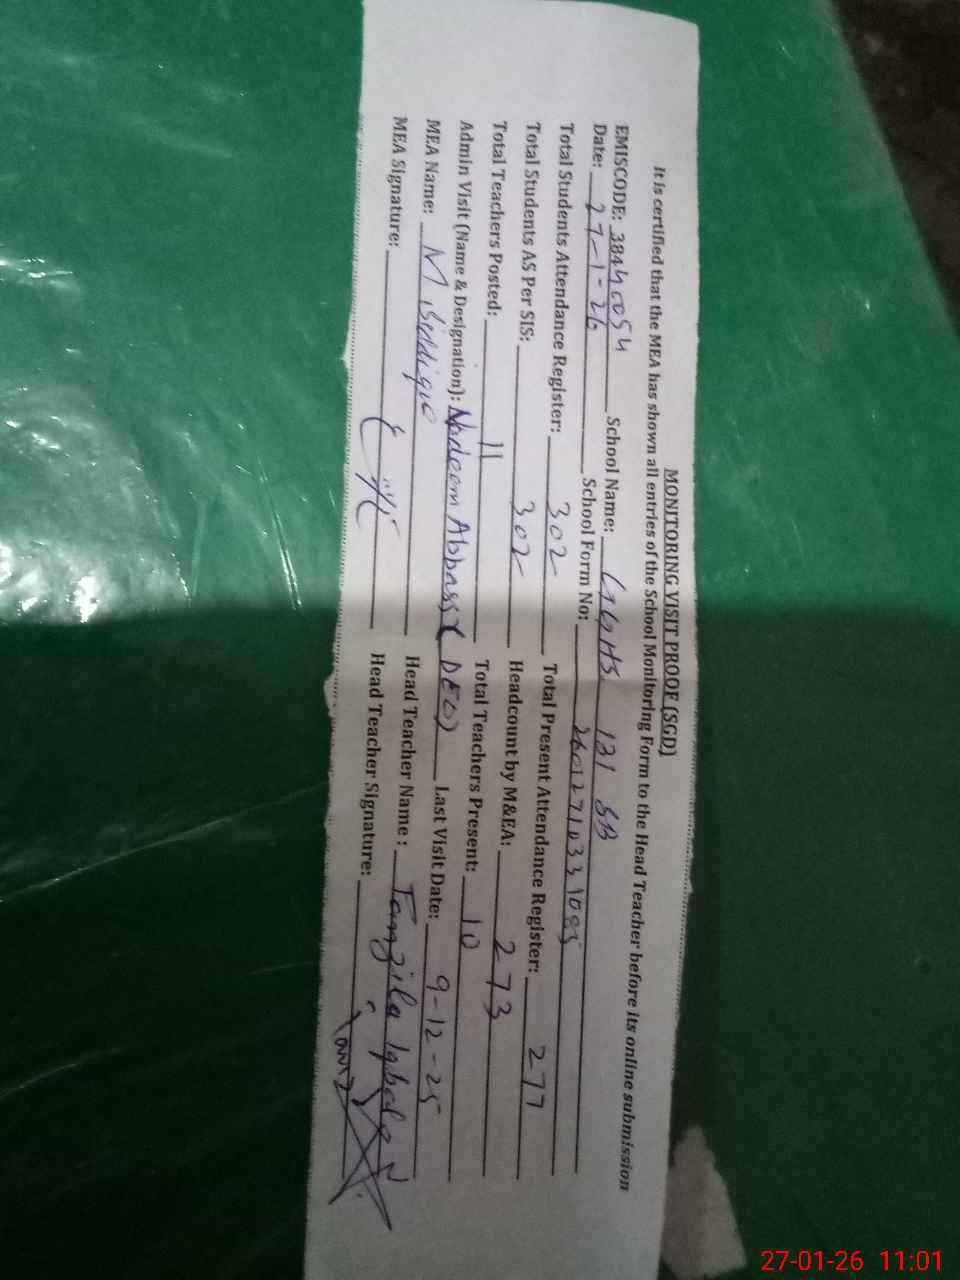 MONITORING VISIT PROOF (SGD)
It is certified that the MEA has shown all entries of the School Monitoring Form to the Head Teacher before its online submission
EMISCODE: 38440054 School Name: GGHS 131 SB
Date: 27-1-26 School Form No: 26012710331085
Total Students Attendance Register: 302 Total Present Attendance Register: 277
Total Students AS Per SIS: 302 Headcount by M&EA: 273
Total Teachers Posted: 11 Total Teachers Present: 10
Admin Visit (Name & Designation): Nadeem Abbass (DEO) Last Visit Date: 9-12-25
MEA Name: M Siddique Head Teacher Name : Tanzila Iqbal
MEA Signature: Head Teacher Signature:
27-01-26 11:01